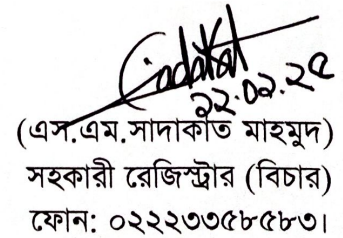 Sadakat
২২.০২.২৫
(এস.এম.সাদাকাত মাহমুদ)
সহকারী রেজিস্ট্রার (বিচার)
ফোন: ০২২২৩৩৫৮৫৮৩।